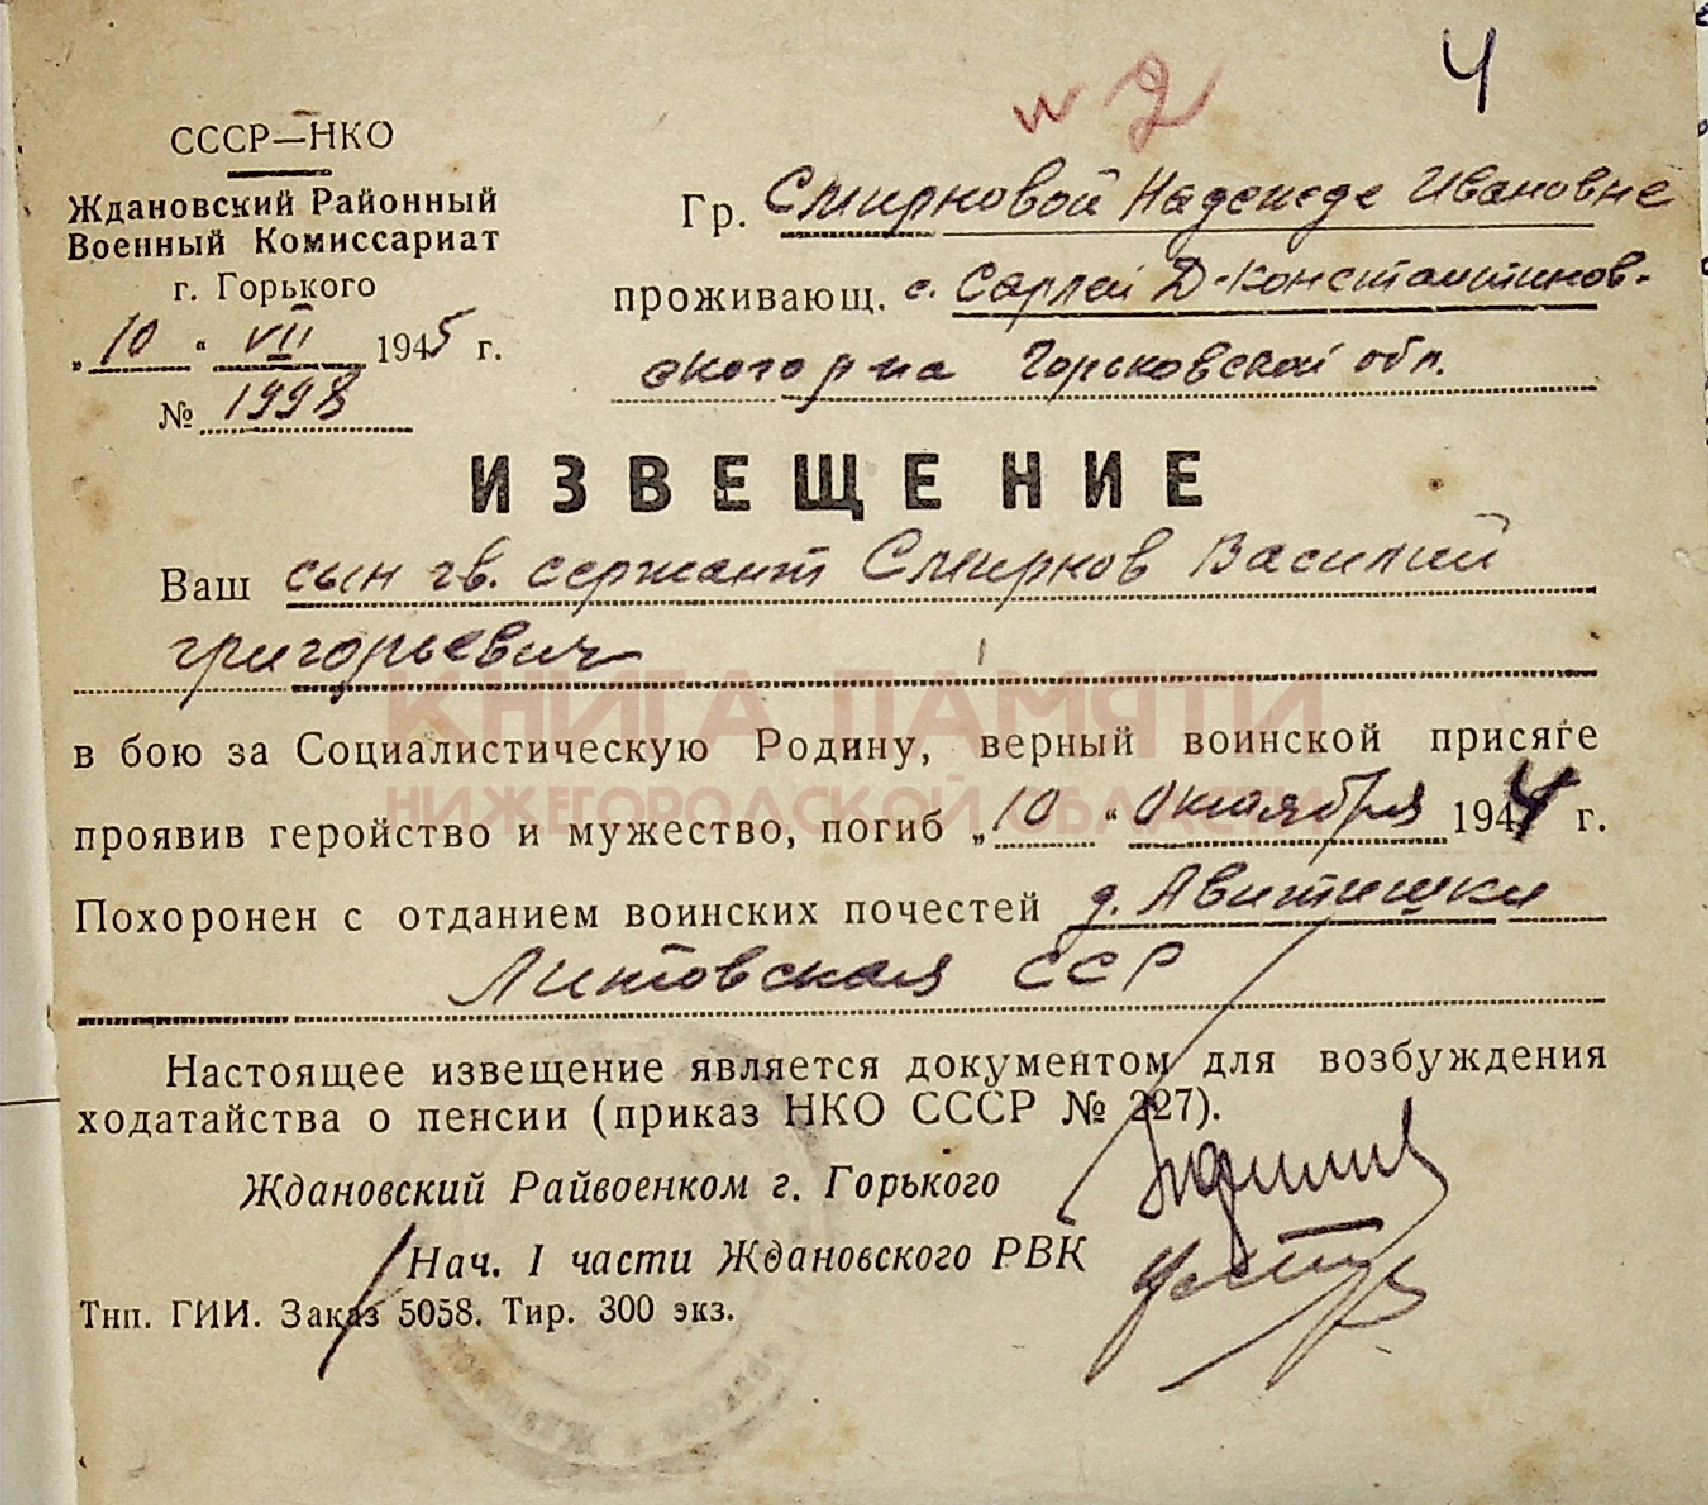 4
и 2
СССР—НКО
Ждановский Районный
Военный Комиссариат
г. Горького
„10“ VII 1945 г.
№ 1998
Гр. Смирновой Надежде Ивановне
проживающ. с. Сарлей Д-Константинов-
ского р-на Горьковской обл.
ИЗВЕЩЕНИЕ
Ваш сын гв. сержант Смирнов Василий
григорьевич
КНИГА ПАМЯТИ
в бою за Социалистическую Родину, верный воинской присяге
НИЖЕГОРОДСКОЙ ОБЛАСТИ
проявив геройство и мужество, погиб „10“ Октября 1944 г.
Похоронен с отданием воинских почестей д. Авитишки
Литовская ССР
Настоящее извещение является документом для возбуждения
ходатайства о пенсии (приказ НКО СССР № 227).
Ждановский Райвоенком г. Горького
Нач. I части Ждановского РВК
Тип. ГИИ. Заказ 5058. Тир. 300 экз.